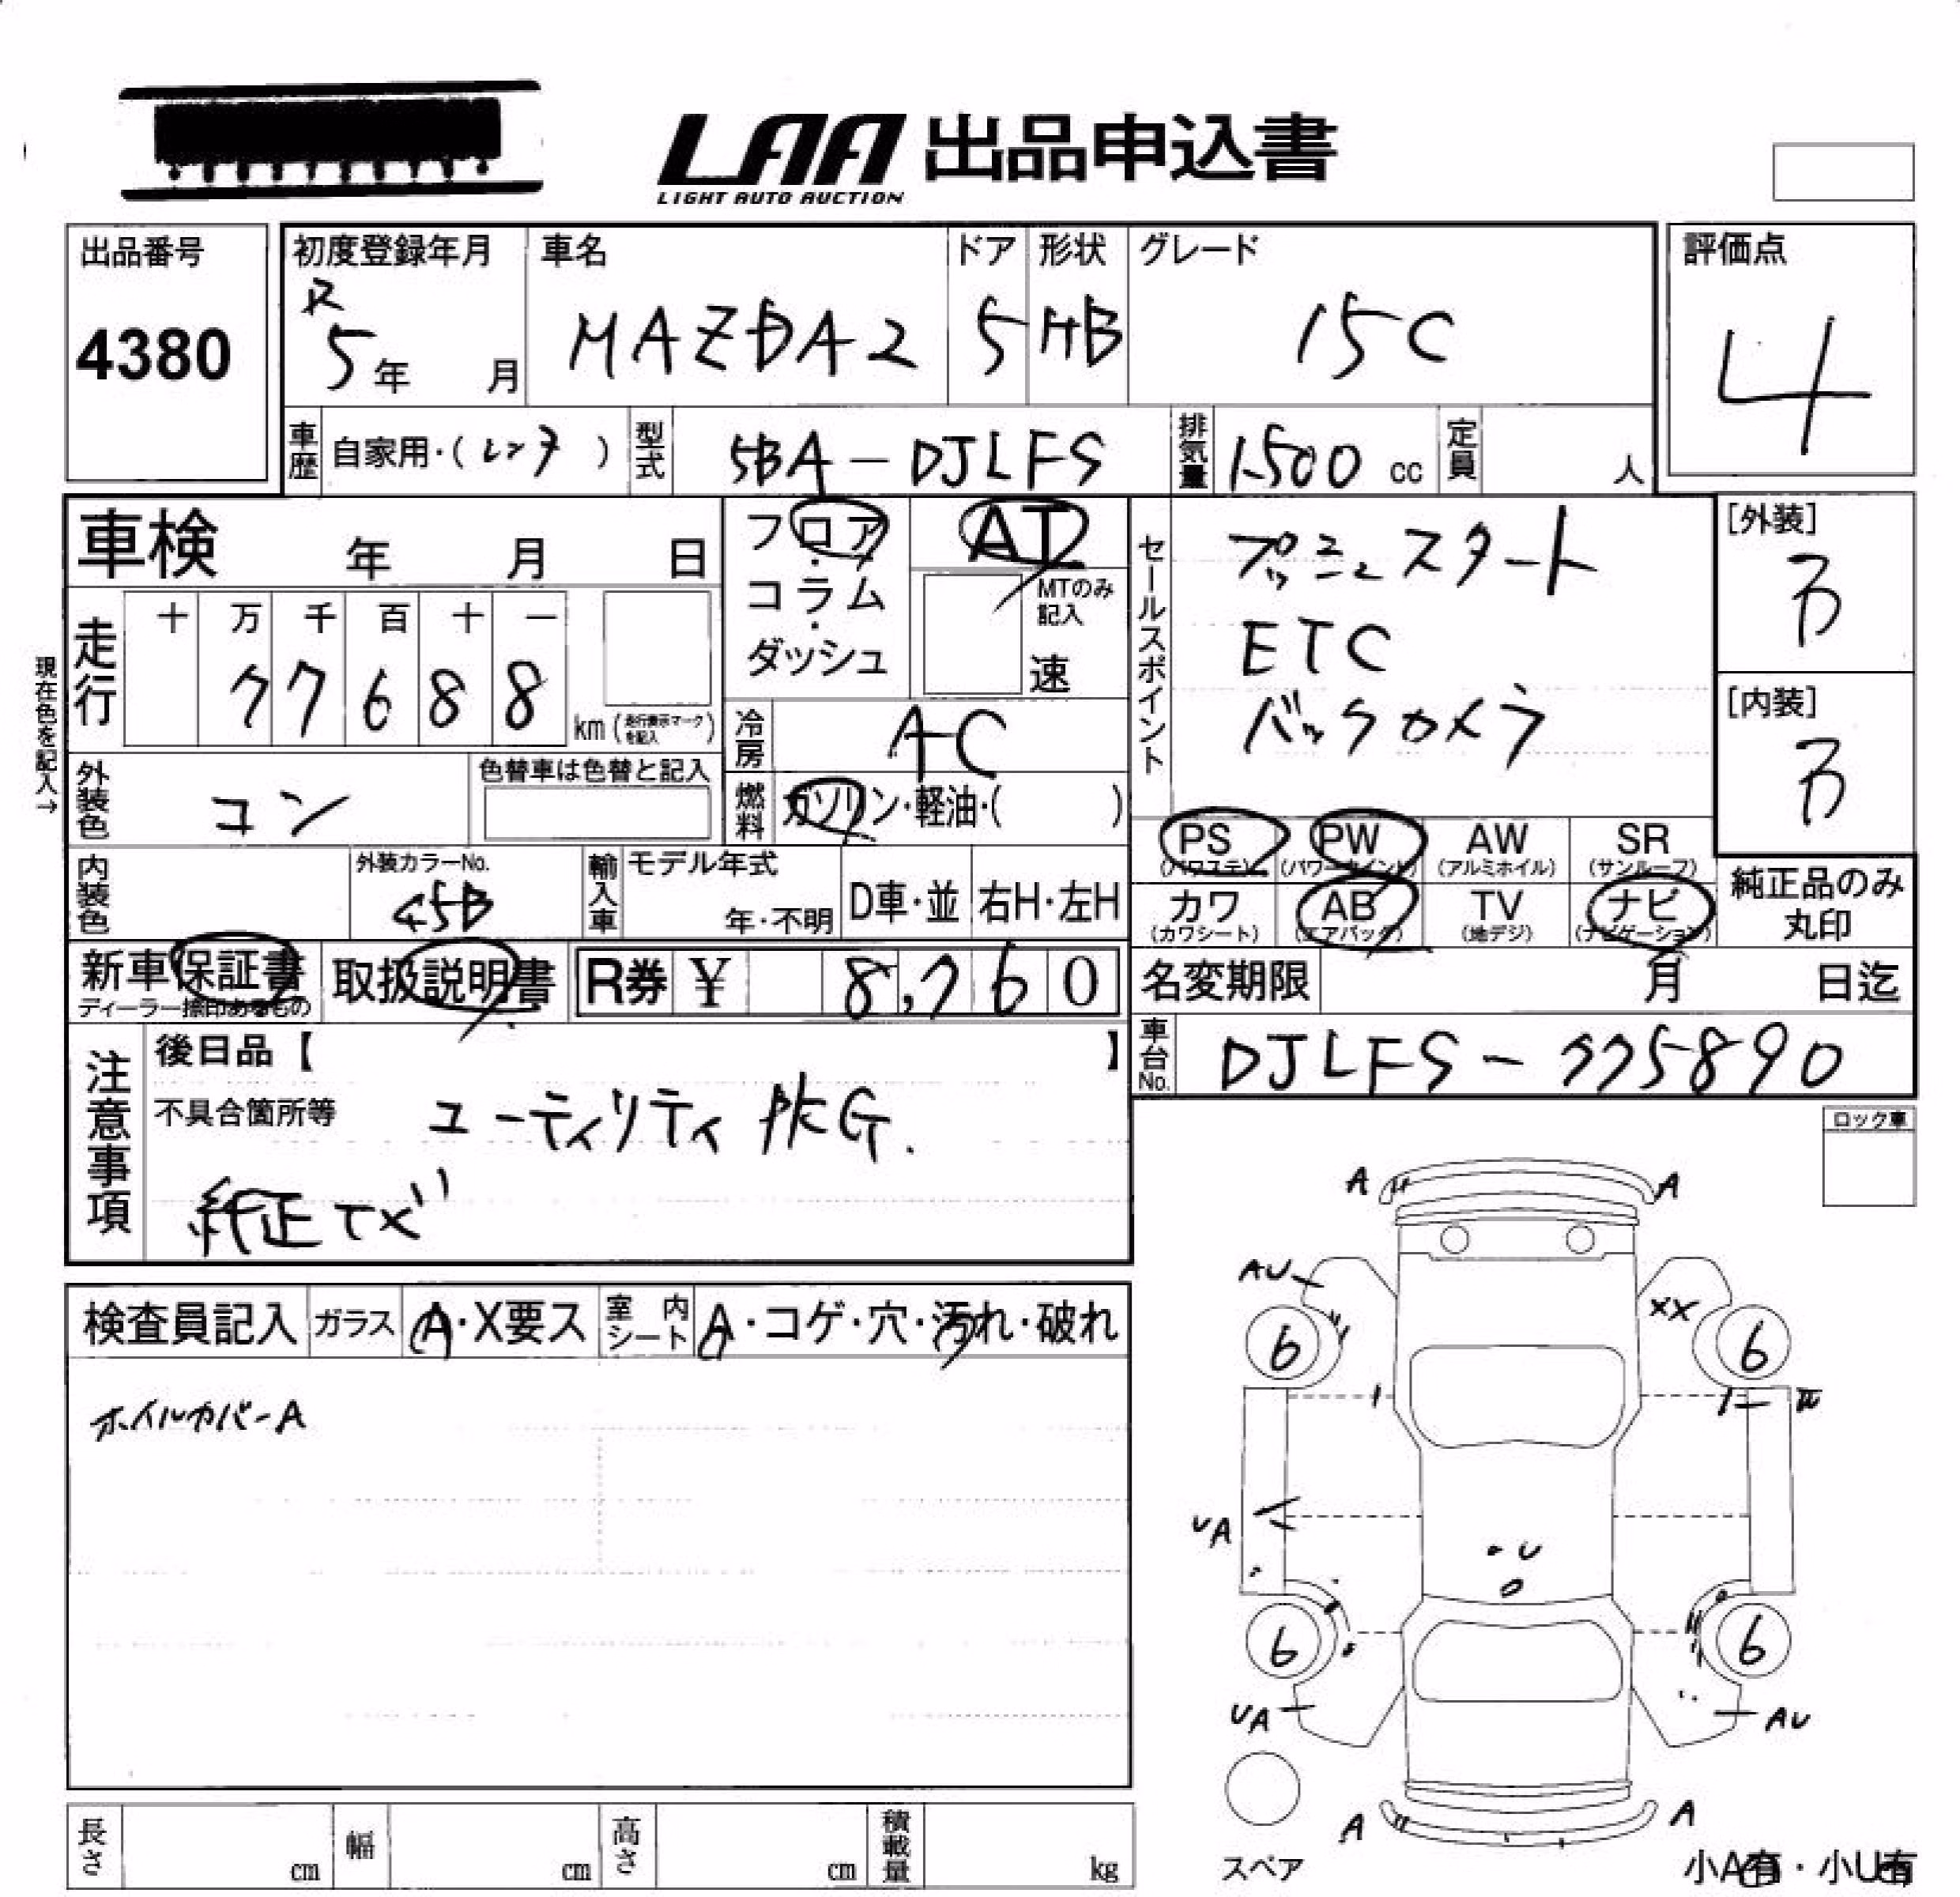 LAA 出品申込書
LIGHT AUTO AUCTION
出品番号
4380
初度登録年月
R
5年 月
車名
MAZDA2
ドア
5
形状
HB
グレード
15C
評価点
4
車歴 自家用・(レンタ)
型式 5BA-DJLFS
排気量 1500 cc
定員 人
車検 年 月 日
フロア・コラム・ダッシュ
AT
MTのみ記入
速
セールスポイント
プッシュスタート
ETC
バックカメラ
[外装]
[内装]
現在色を記入→
走行
十 万 千 百 十 一
77688
km(走行表示マークを記入)
冷房 AC
外装色 コン
色替車は色替と記入
燃料 ガソリン・軽油・( )
PS (パワステ)
PW (パワーウインド)
AW (アルミホイル)
SR (サンルーフ)
カワ (カワシート)
AB (エアバッグ)
TV (地デジ)
ナビ (ナビゲーション)
純正品のみ丸印
内装色
外装カラーNo.
45B
輸入車
モデル年式
年・不明
D車・並
右H・左H
新車保証書
ディーラー捺印あるもの
取扱説明書
R券 ¥ 8,760
名変期限 月 日迄
車台No. DJLFS-775890
注意事項
後日品【 】
不具合箇所等 ユーティリティPKG.
純正ナビ
ロック車
検査員記入
ガラス A・X要ス
室内シート A・コゲ・穴・汚れ・破れ
ホイルカバーA
A A
AU XX
6 6
UA
U
6 6
UA AU
A A
スペア
小A有・小U有
長さ cm
幅 cm
高さ cm
積載量 kg